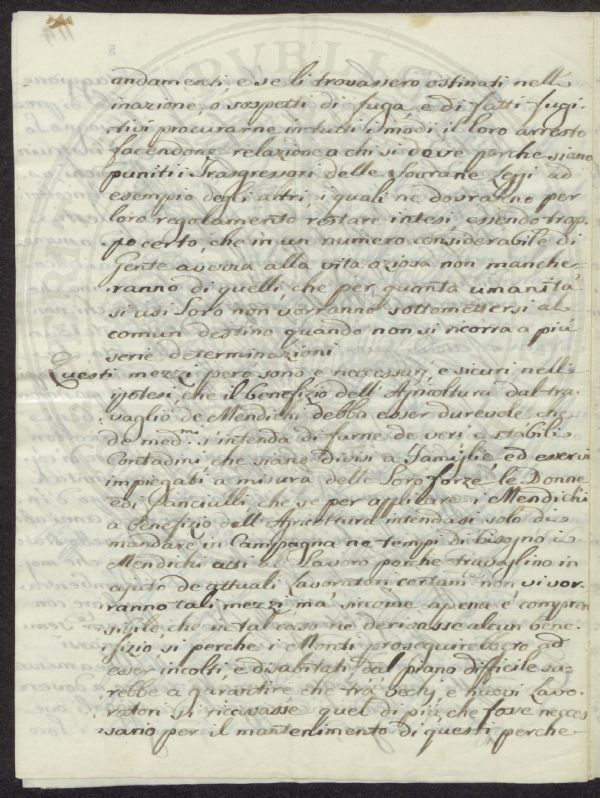 andamenti, e se li trovassero ostinati nell'
inazione, o sospetti di fuga, e di fatti fugi-
tivi procurarne in tutti i modi il loro arresto
facendone relazione a chi si deve perche siano
puniti i Trasgressori delle Sourane Leggi ad
esempio degli altri, i quali ne dovranno per
loro regolamento restare intesi, essendo trop-
po certo, che in un numero considerabile di
Gente avezza alla vita oziosa non manche-
ranno di quelli, che per quanta umanità
si usi Loro non vorranno sottomettersi al
comun destino quando non si ricorra a più
serie determinazioni
Questi mezzi però sono e necessarj, e sicuri nell'
ipotesi, che il benefizio dell'Agricoltura dal tra-
vaglio de Mendichi debba esser durevole che
de med.mi s'intenda di farne de veri e stabili
Contadini che siano divisi a Famiglie, ed esservi
impiegati a misura delle Loro forze, le Donne
ed i Fanciulli, che se per applicare i Mendichi
a benefizio dell'Agricoltura intendasi solo di
mandare in Campagna ne tempi di bisogno i
Mendichi atti al Lavoro perche travaglino in
ajuto de attuali Lavoratori certam.te non vi vor-
ranno tali mezzi, mà siccome apena è compren
sibile, che in tal caso ne derivasse alcun bene-
fizio, si perche i Monti proseguirebbero ad
esser incolti, e disabitati dal piano difficile sa-
rebbe a garantire che trà vechj, e nuovi Lavo-
ratori si ricavasse quel di più, che fosse neces
sario per il mantenimento di questi perche